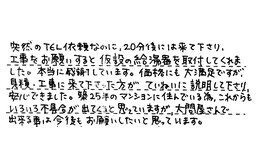 突然のTEL依頼なのに、20分後には来て下さり、
工事をお願いすると仮設の給湯器を取付してくれま
した。本当に感謝しています。価格にも大満足ですが、
見積・工事に来て下さった方が ていねいに説明して下さり、
安心できました。築25年のマンションに住んでいる為、これからも
いろいろ不具合が出てくると思っていますが、大問屋さんで
出来る事は今後もお願いしたいと思っています。